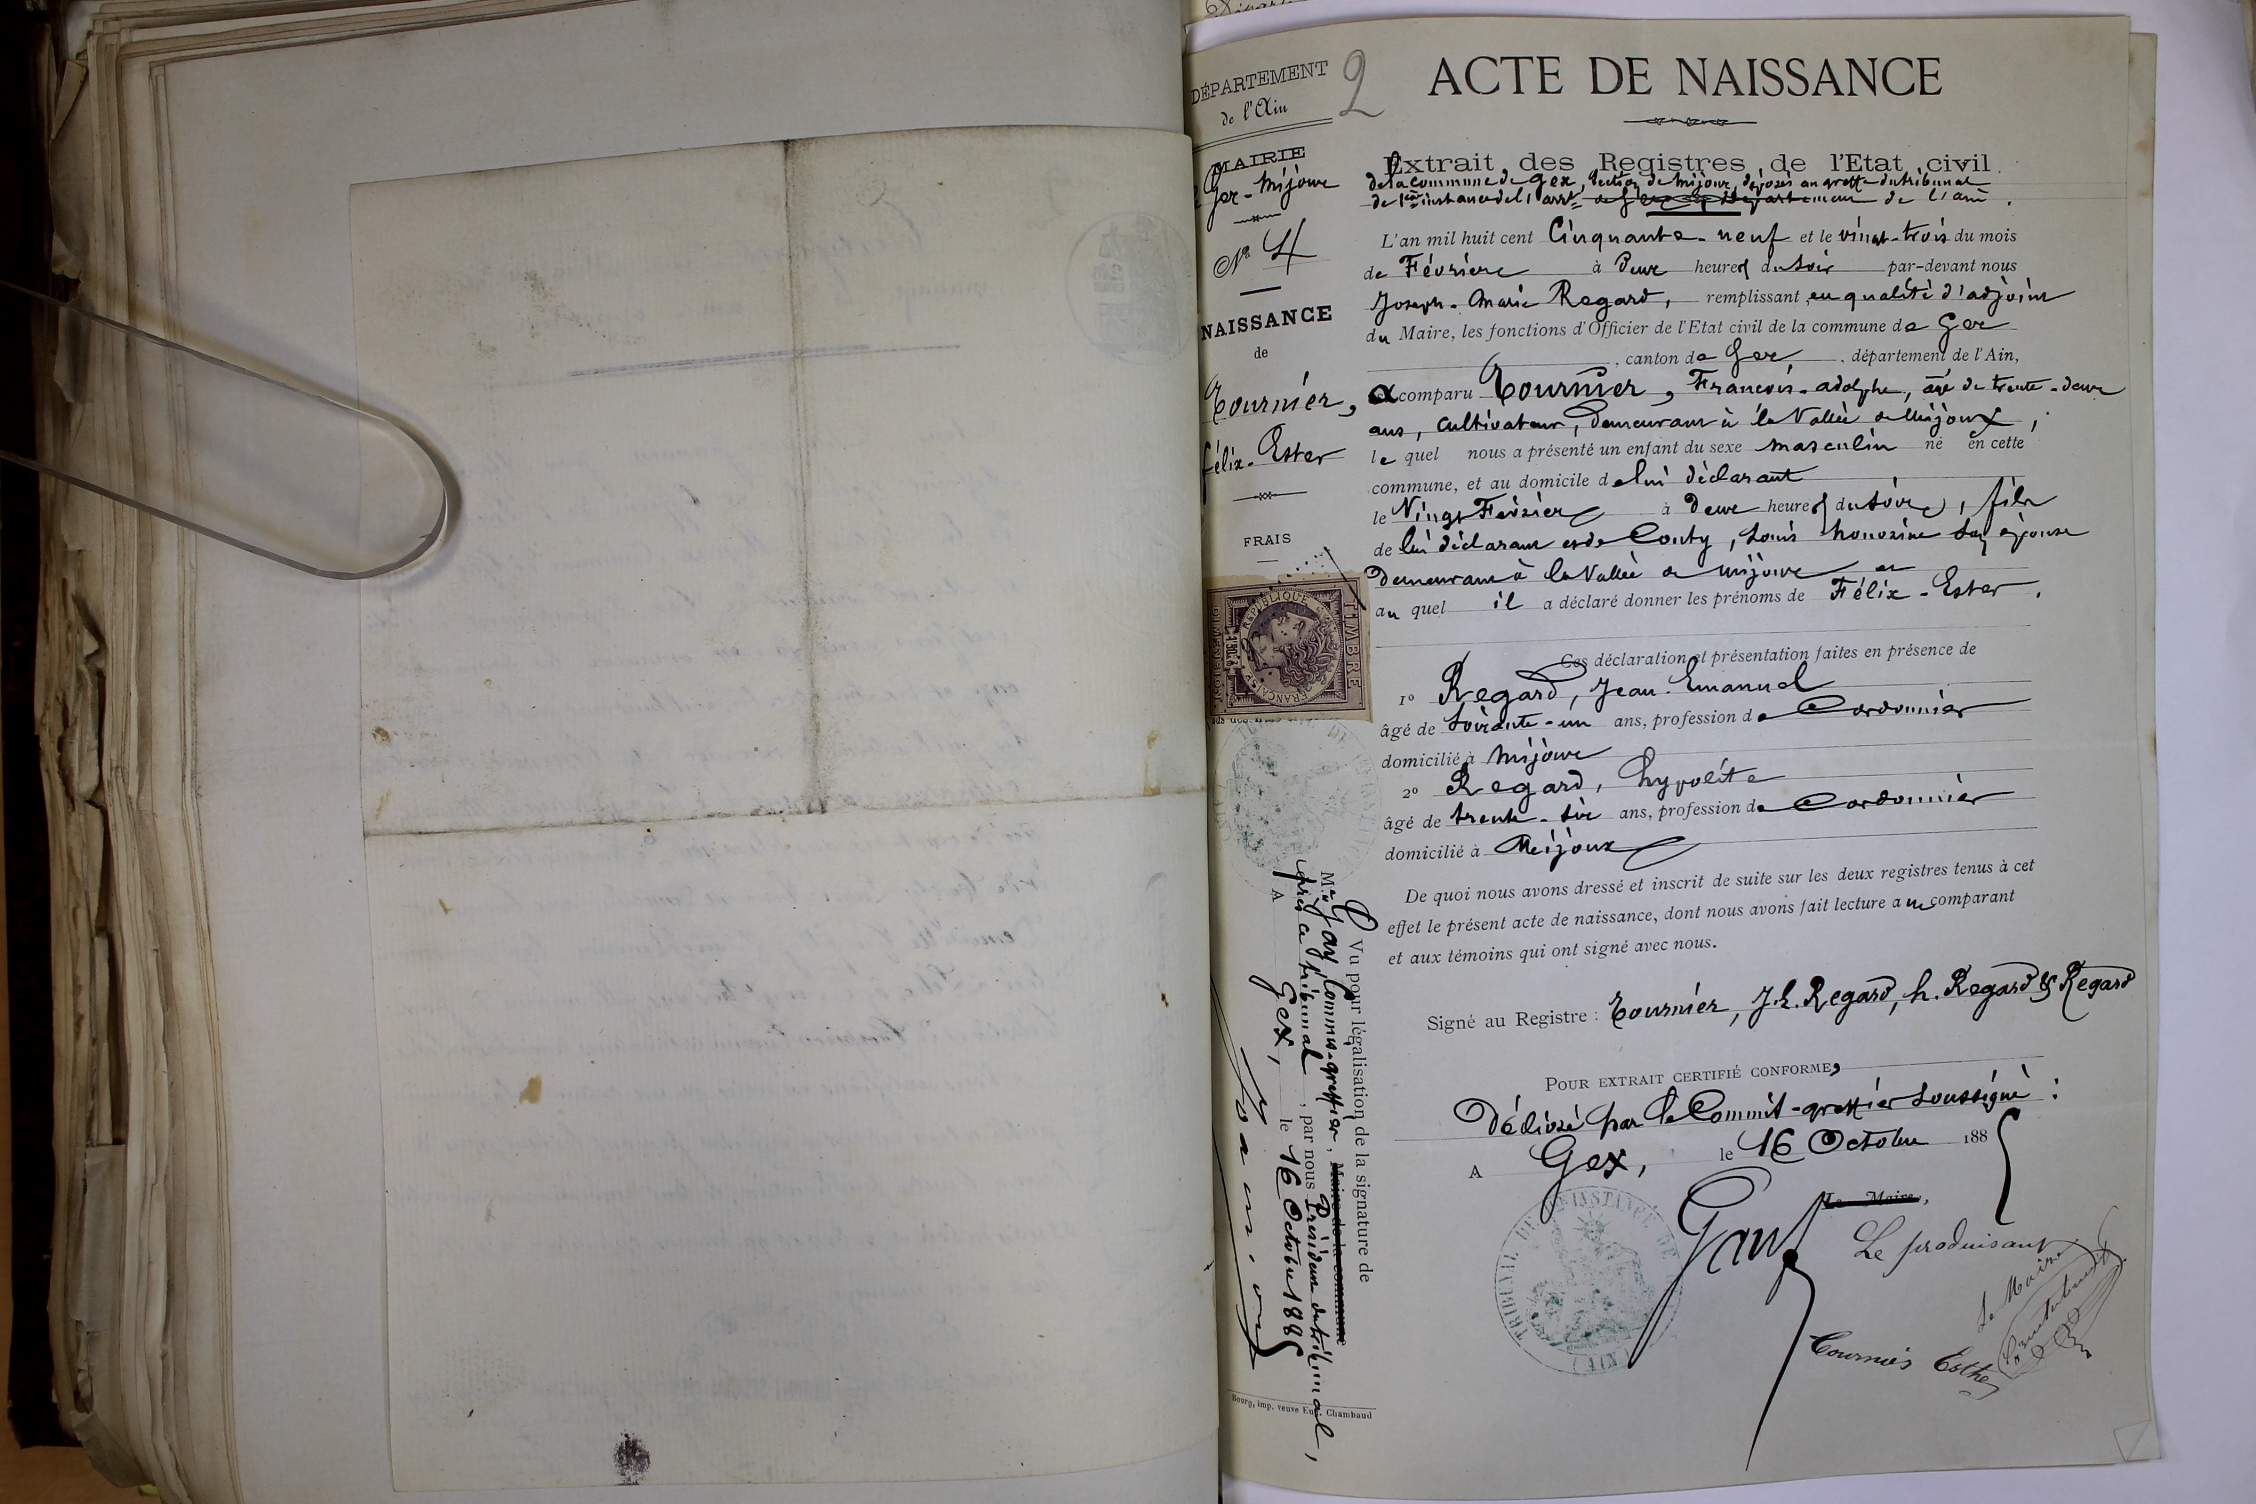 DÉPARTEMENT
de l'Ain
2
MAIRIE
Gex-Mijoux
N° 4
NAISSANCE
de
Tournier,
félix-Ester
FRAIS
RÉPUBLIQUE
FRANÇAISE
TIMBRE
ACTE DE NAISSANCE
Extrait des Registres de l'Etat civil
de la commune de Gex, section de Mijoux, déposés au greffe du tribunal
de 1ère instance de l'arrt de l'ain.
L'an mil huit cent Cinquante-neuf et le vingt-trois du mois
de Février à Deux heures du soir par-devant nous
Joseph-Marie Regard, remplissant, en qualité d'adjoint
du Maire, les fonctions d'Officier de l'Etat civil de la commune de Gex
, canton de Gex, département de l'Ain,
a comparu Tournier, François-adolphe, âgé de trente-deux
ans, Cultivateur, Demeurant à la Vallée de Mijoux,
le quel nous a présenté un enfant du sexe masculin né en cette
commune, et au domicile de lui déclarant
le Vingt Février à Deux heures du soir, fils
de lui déclarant et de Conty, Louis honorine son épouse
Demeurant à la Vallée de Mijoux et
au quel il a déclaré donner les prénoms de Félix-Ester.
Ces déclaration et présentation faites en présence de
1° Regard, Jean-Emanuel
âgé de Soixante-un ans, profession de Cordonnier
domicilié à Mijoux
2° Regard, hypolite
âgé de trente-six ans, profession de Cordonnier
domicilié à Mijoux
De quoi nous avons dressé et inscrit de suite sur les deux registres tenus à cet
effet le présent acte de naissance, dont nous avons fait lecture au comparant
et aux témoins qui ont signé avec nous.
Signé au Registre : Tournier, J.E. Regard, h. Regard & Regard
POUR EXTRAIT CERTIFIÉ CONFORME,
Délivré par le Commis-greffier soussigné :
A Gex, le 16 Octobre 1885
Le Maire,
TRIBUNAL DE 1RE INSTANCE DE GEX (AIN)
Le produisant
Le Maire
Tournier Esther
Vu pour légalisation de la signature de
Mr Gay Commis-greffier, Maire de la commune
près ce tribunal, par nous Président du tribunal,
A Gex, le 16 Octobre 1885
Bourg, imp. veuve Eug. Chambaud